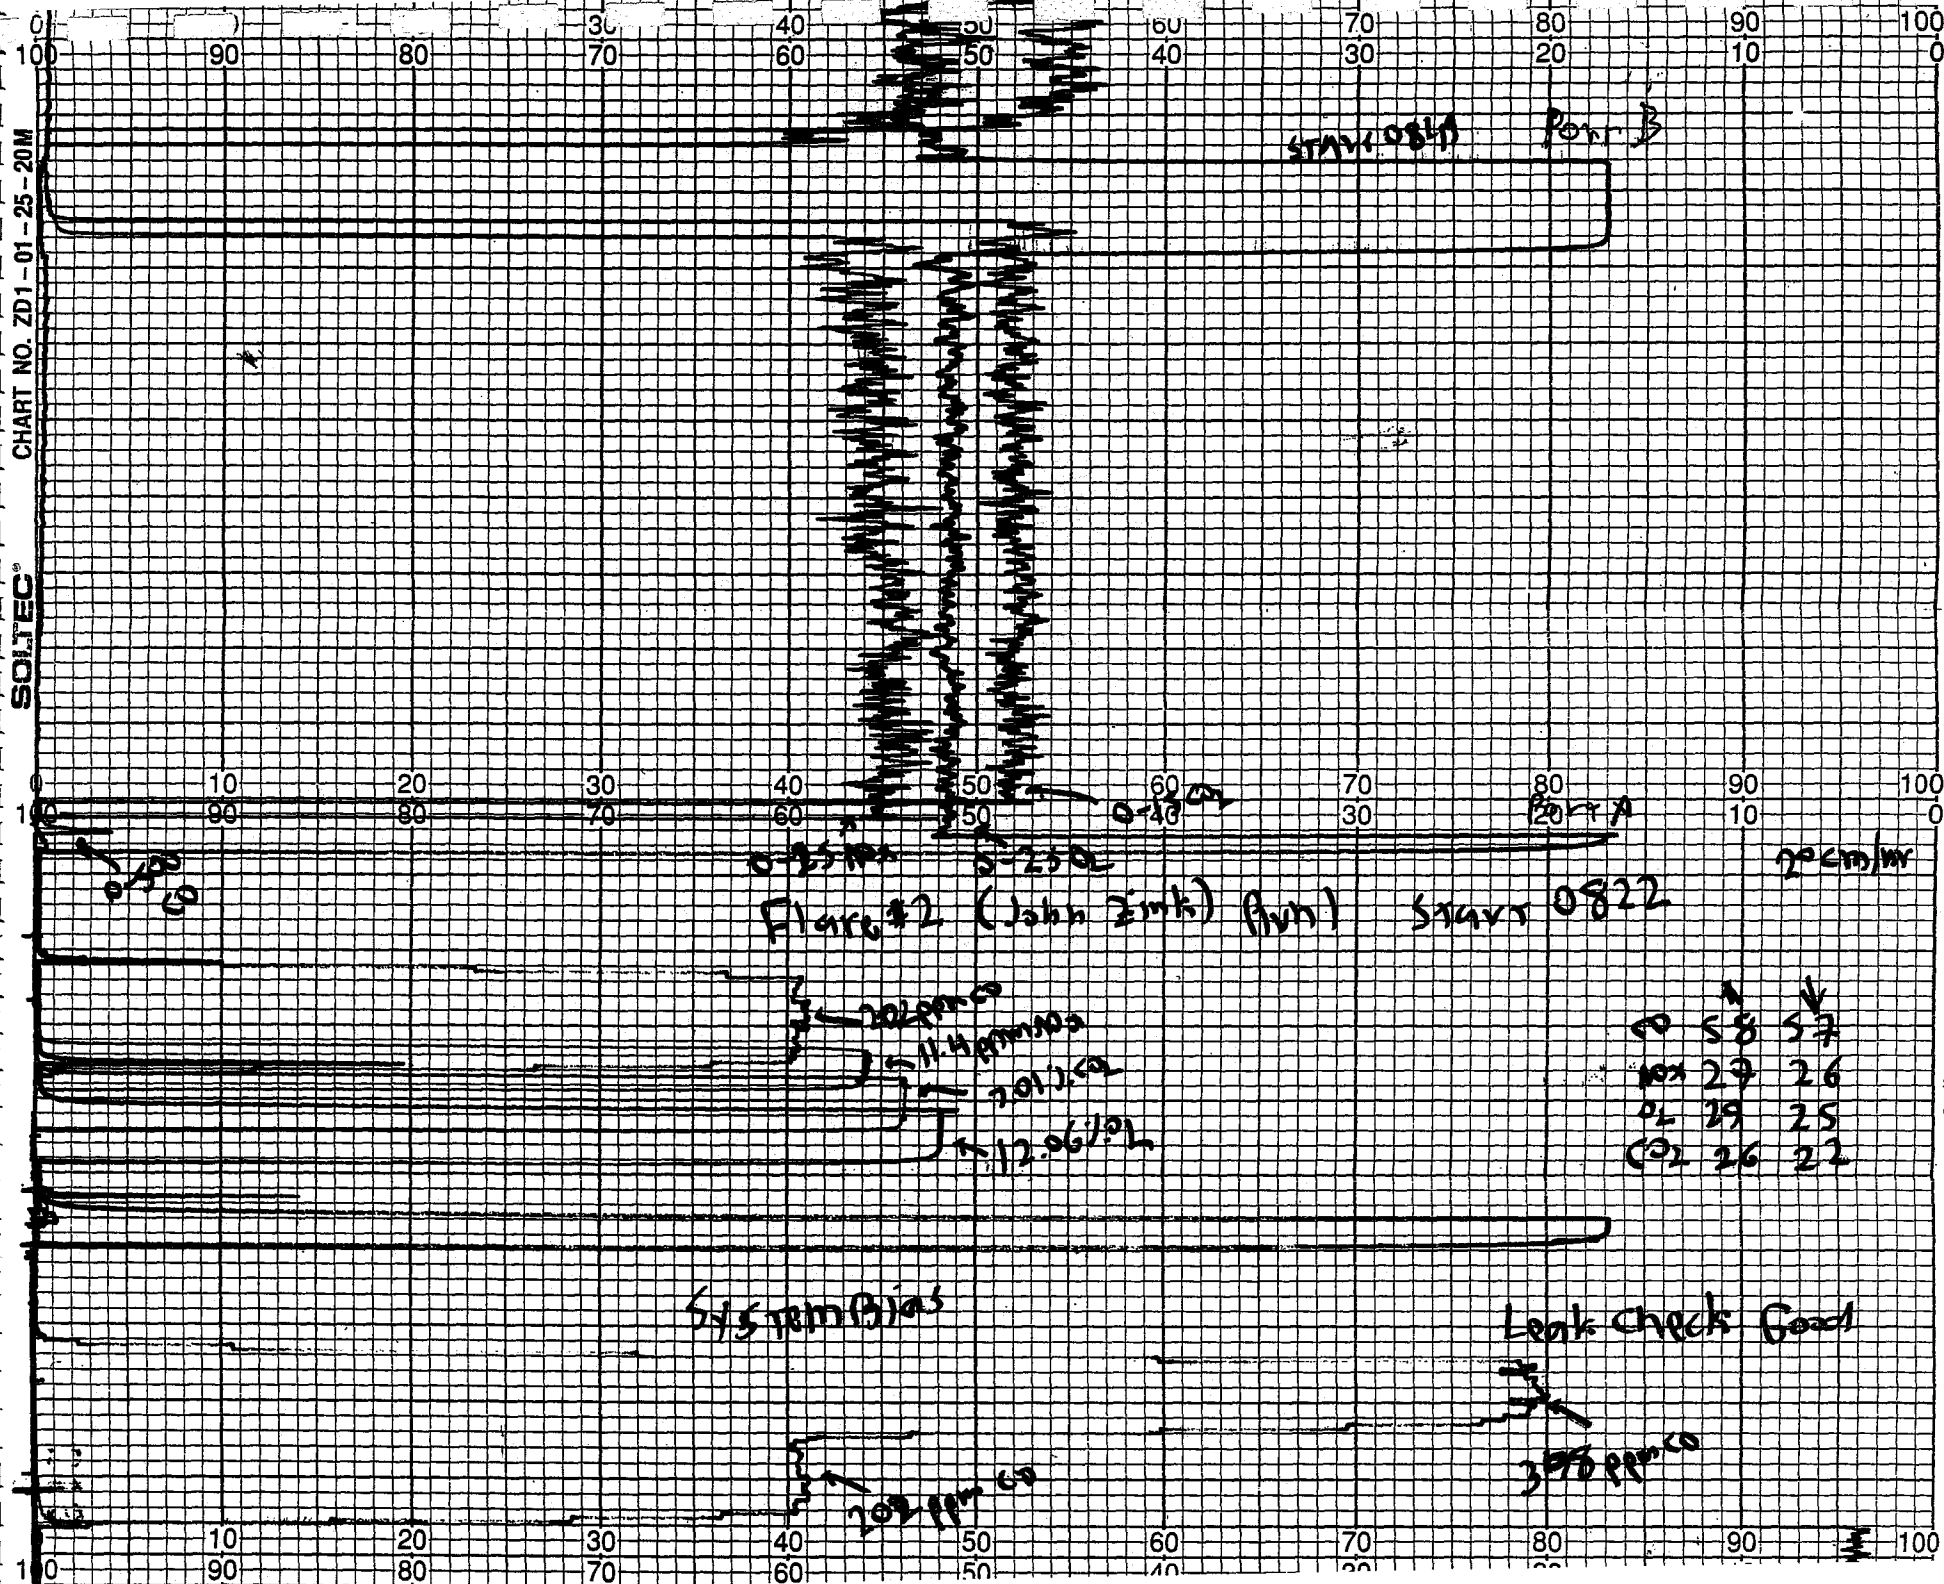 0 30 40 50 60 70 80 90 100
100 90 80 70 60 50 40 30 20 10 0
CHART NO. ZD1-01-25-20M
Port B
SOLTEC
0 10 20 30 40 50 60 70 80 90 100
100 90 80 70 60 50 40 30 20 10 0
Port A
0-25 NOx
0-25 O2
20 cm/hr
0-500
CO
Flare #2 (John Zink) Run 1 Start 0822
202 ppm CO
11.4 ppm NOx
7.01% CO2
12.06% O2
CO 58 57
NOx 27 26
O2 29 25
CO2 26 22
System Bias
Leak Check Good
398 ppm CO
202 ppm CO
0 10 20 30 40 50 60 70 80 90 100
100 90 80 70 60 50 40 30 20 10 0